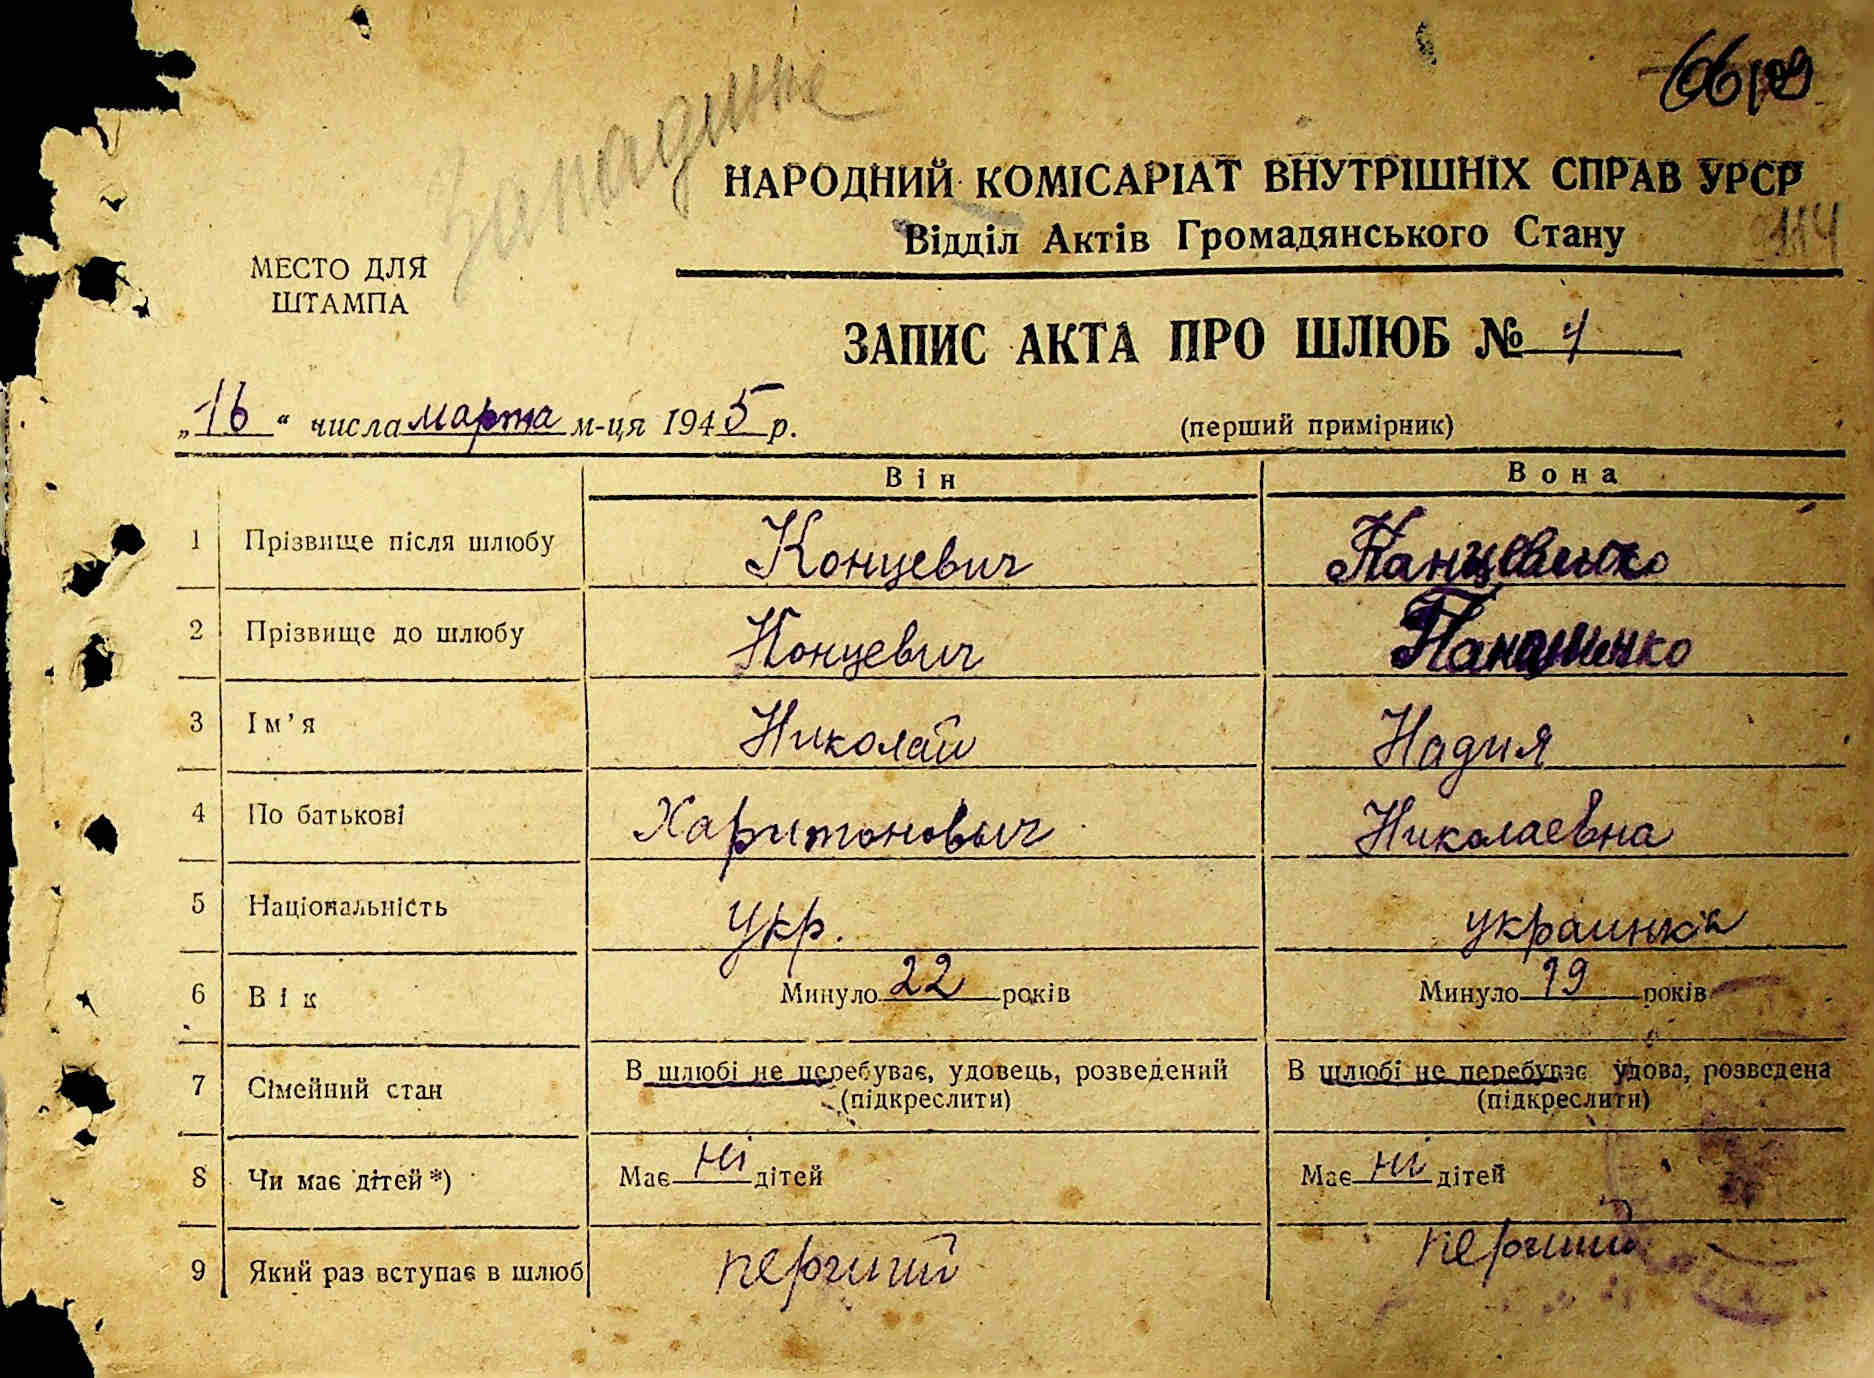 НАРОДНИЙ КОМІСАРІАТ ВНУТРІШНІХ СПРАВ УРСР
114
Відділ Актів Громадянського Стану
МЕСТО ДЛЯ
ШТАМПА
ЗАПИС АКТА ПРО ШЛЮБ №
„16“ числа марта м-ця 1945 р.
(перший примірник)
Він Вона
1 Прізвище після шлюбу Концевич
2 Прізвище до шлюбу Концевич
3 Ім'я Николай Надия
4 По батькові Харитонович Николаевна
5 Національність Укр. украинка
6 Вік Минуло 22 років Минуло 19 років
7 Сімейний стан В шлюбі не перебуває, удовець, розведений В шлюбі не перебуває удова, розведена
(підкреслити) (підкреслити)
8 Чи має дітей *) Має ні дітей Має ні дітей
9 Який раз вступає в шлюб перший перший